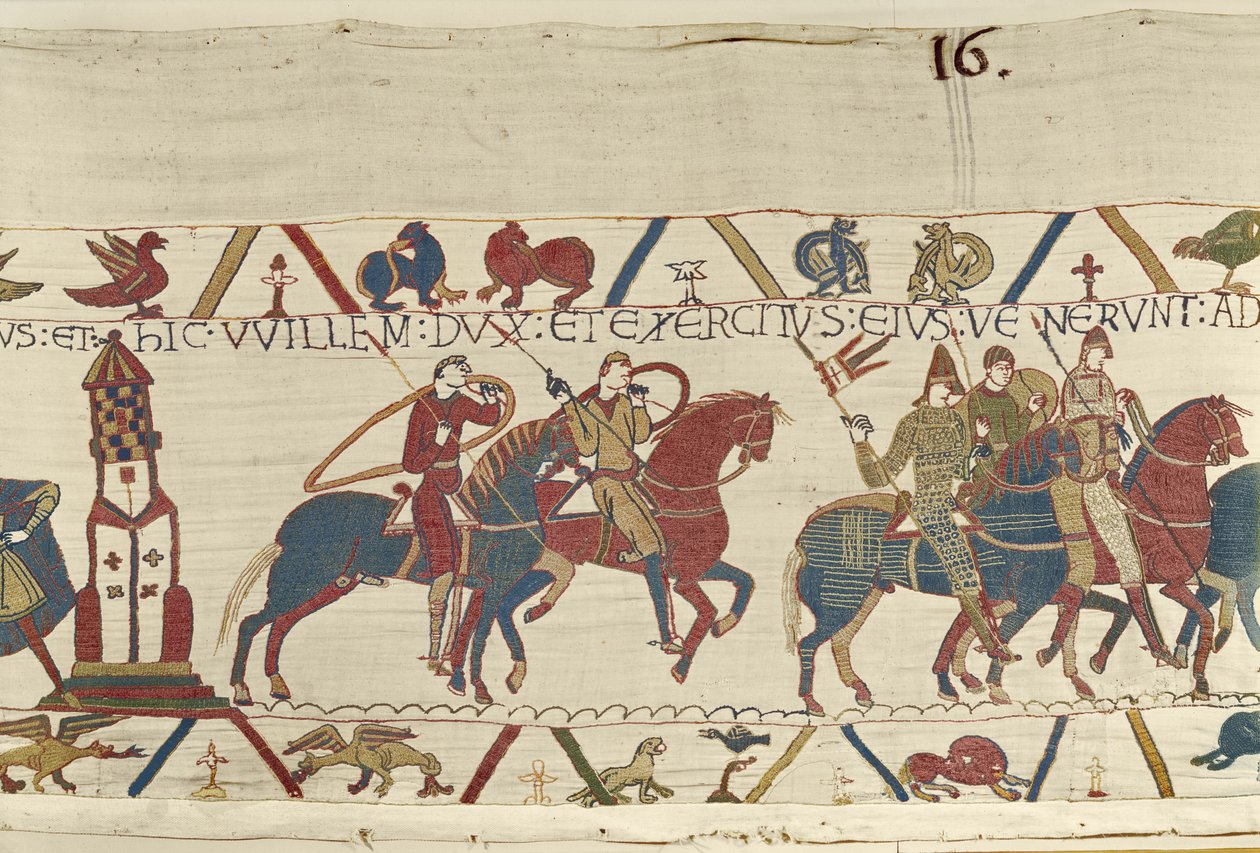 16.
VS: ET: hIC· VVILLEM: DVX: ET EXERCITVS: EIVS: VENERVNT: AD